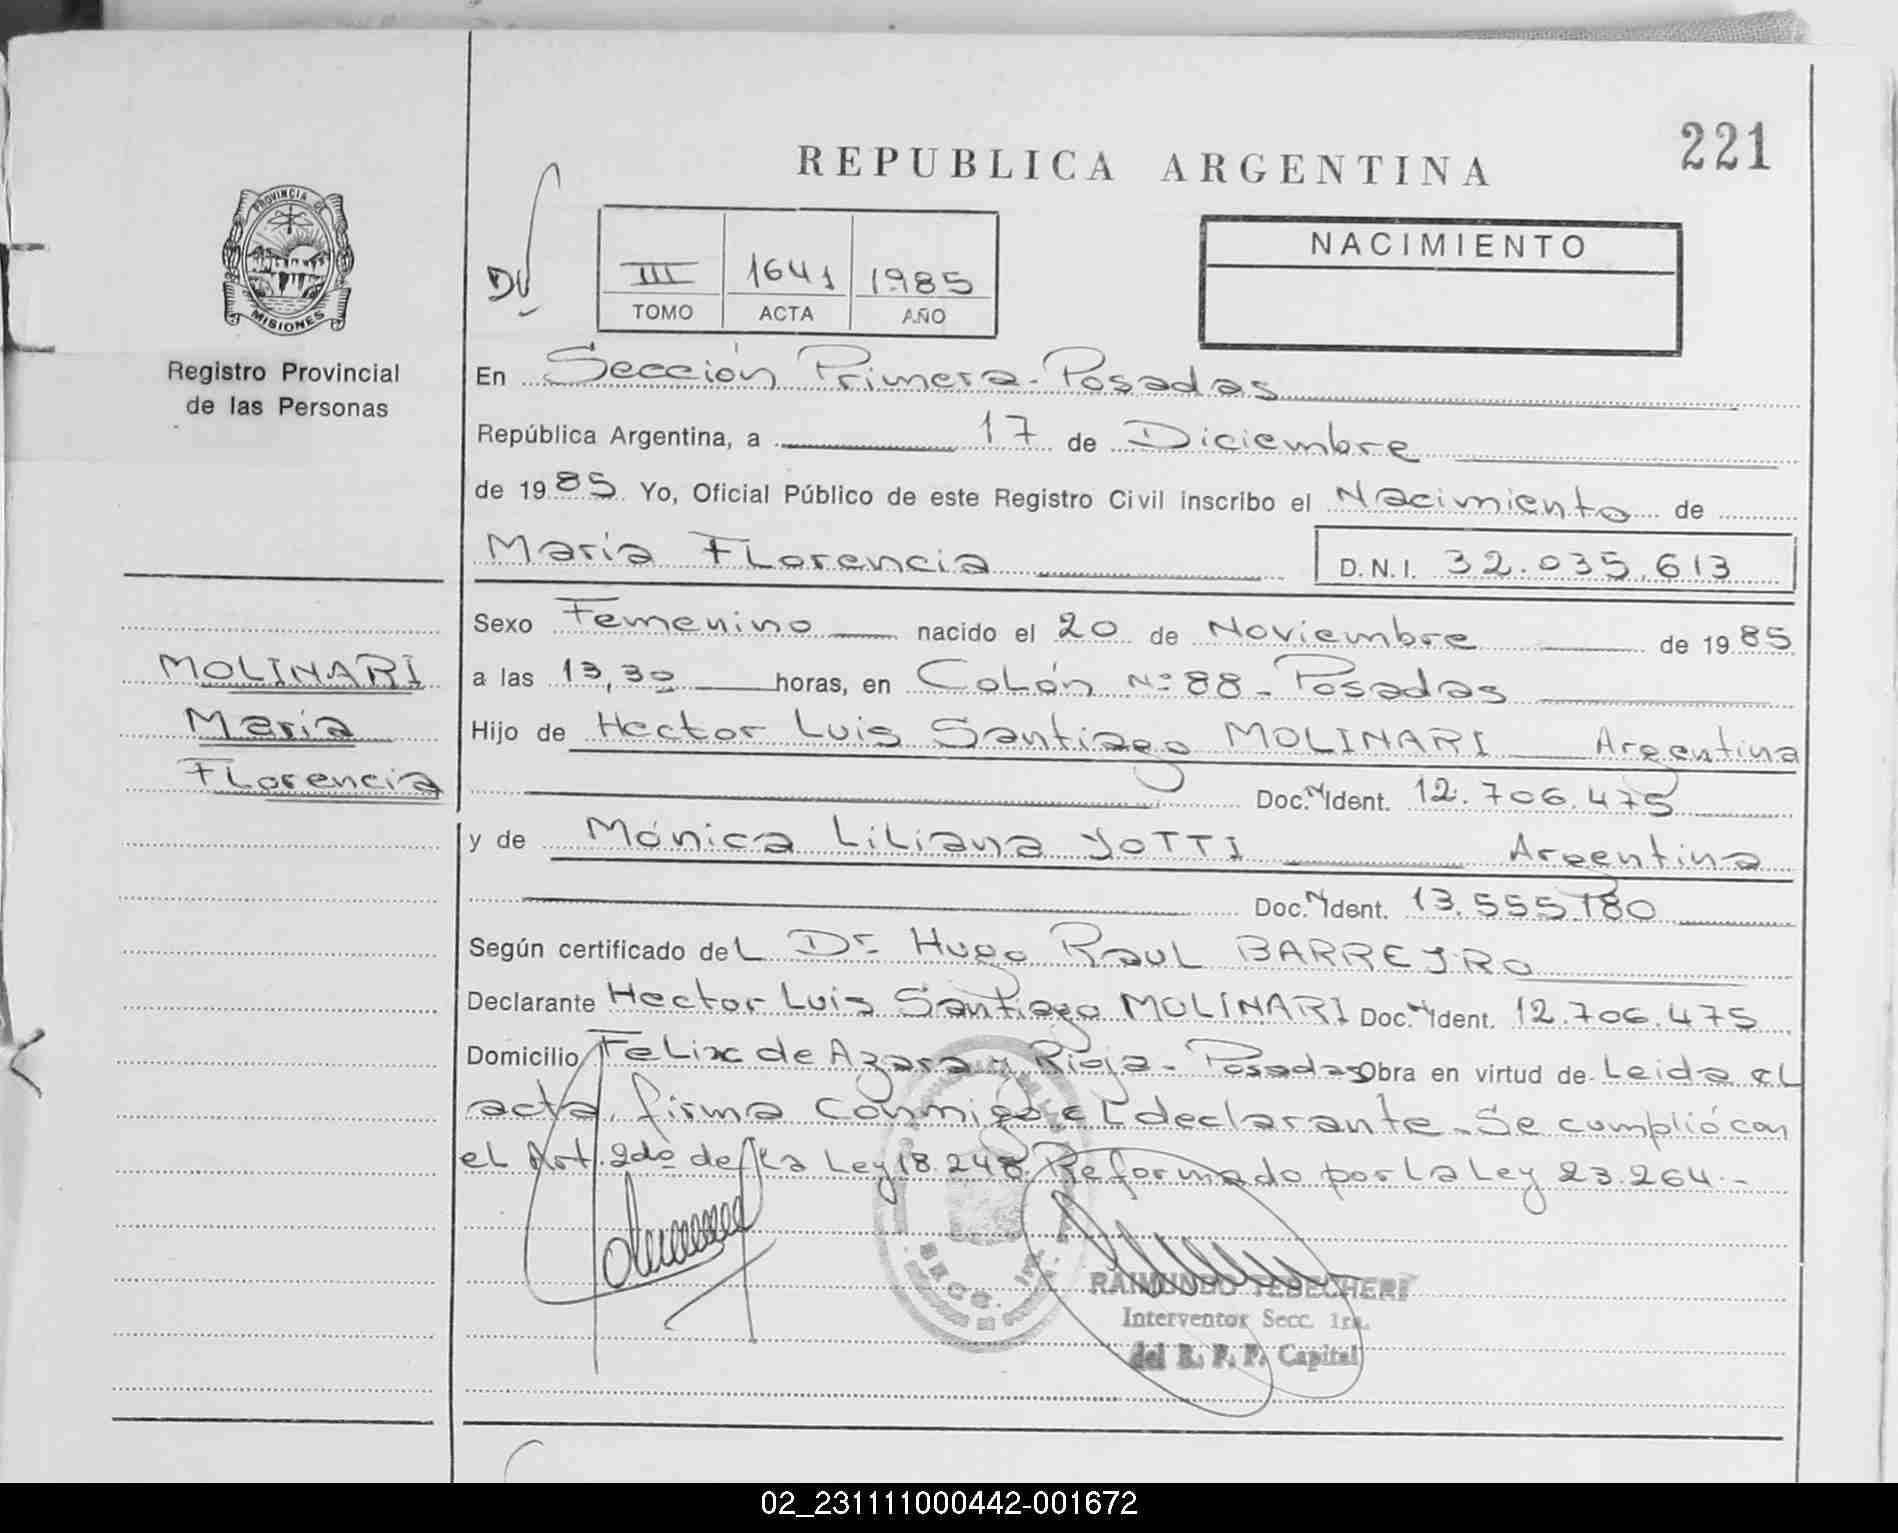 221
REPUBLICA ARGENTINA
PROVINCIA DE
MISIONES
Registro Provincial
de las Personas
DU
III 1641 1985
TOMO ACTA AÑO
NACIMIENTO
En Sección Primera - Posadas
República Argentina, a 17 de Diciembre
de 1985 Yo, Oficial Público de este Registro Civil inscribo el Nacimiento de
María Florencia D.N.I. 32.035.613
Sexo Femenino nacido el 20 de Noviembre de 1985
MOLINARI
María
Florencia
a las 13,30 horas, en Colón Nº 88 - Posadas
Hijo de Hector Luis Santiago MOLINARI Argentina
Doc. N Ident. 12.706.475
y de Mónica Liliana YOTTI Argentina
Doc. N Ident. 13.555.180
Según certificado del Dr Hugo Raul BARREYRO
Declarante Hector Luis Santiago MOLINARI Doc. N Ident. 12.706.475
Domicilio Felix de Azara y Rioja - Posadas Obra en virtud de Leida el
acta, firma conmigo el declarante. Se cumplió con
el Art. 2do de la Ley 18.248. Reformado por la Ley 23.264.-
RAIMUNDO TEBECHERI
Interventor Secc. 1ra.
del R. P. P. Capital
02_231111000442-001672